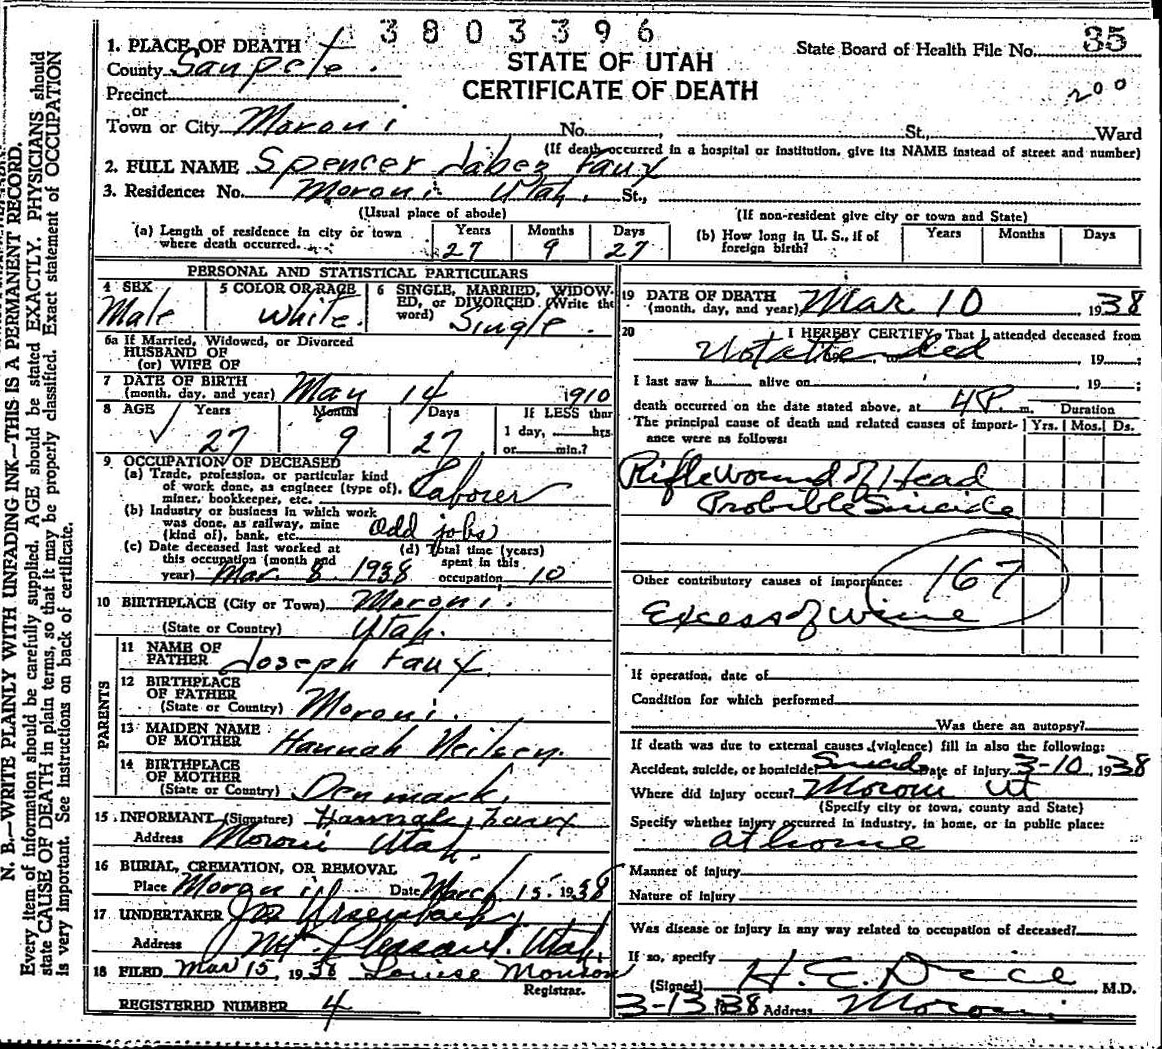 3803396
State Board of Health File No. 35
200
STATE OF UTAH
CERTIFICATE OF DEATH
1. PLACE OF DEATH
County Sanpete.
Precinct
or
Town or City Moroni No. , St., Ward
(If death occurred in a hospital or institution, give its NAME instead of street and number)
2. FULL NAME Spencer Jabez Faux
3. Residence: No. Moroni Utah. St.,
(Usual place of abode)
(If non-resident give city or town and State)
(a) Length of residence in city or town where death occurred. Years 27 Months 9 Days 27
(b) How long in U. S., if of foreign birth? Years Months Days
PERSONAL AND STATISTICAL PARTICULARS
4 SEX Male
5 COLOR OR RACE White.
6 SINGLE, MARRIED, WIDOWED, or DIVORCED (Write the word) Single.
6a If Married, Widowed, or Divorced
HUSBAND OF
(or) WIFE OF
7 DATE OF BIRTH
(month, day, and year) May 14 1910
8 AGE Years 27 Months 9 Days 27 If LESS than 1 day, hrs. or min.?
9 OCCUPATION OF DECEASED
(a) Trade, profession, or particular kind of work done, as engineer (type of), miner, bookkeeper, etc. Laborer
(b) Industry or business in which work was done, as railway, mine (kind of), bank, etc. Odd jobs
(c) Date deceased last worked at this occupation (month and year) Mar 8 1938
(d) Total time (years) spent in this occupation 10
10 BIRTHPLACE (City or Town) Moroni.
(State or Country) Utah.
PARENTS
11 NAME OF FATHER Joseph Faux
12 BIRTHPLACE OF FATHER
(State or Country) Moroni.
13 MAIDEN NAME OF MOTHER Hannah Neilsen.
14 BIRTHPLACE OF MOTHER
(State or Country) Denmark.
15 INFORMANT (Signature) Hannah Faux
Address Moroni Utah.
16 BURIAL, CREMATION, OR REMOVAL
Place Moroni Date March 15 1938
17 UNDERTAKER
Address Mt. Pleasant. Utah.
18 FILED Mar 15, 1938 Louise Monson
Registrar.
REGISTERED NUMBER 4
19 DATE OF DEATH
(month, day, and year) Mar 10 1938
20 I HEREBY CERTIFY, That I attended deceased from
Not attended , 19 ;
I last saw h alive on , 19 ;
death occurred on the date stated above, at 4 P. m.
Duration
The principal cause of death and related causes of importance were as follows: Yrs. Mos. Ds.
Rifle Wound of Head
Probible Suicide
Other contributory causes of importance: 167
Excess of Wine
If operation, date of
Condition for which performed
Was there an autopsy?
If death was due to external causes (violence) fill in also the following:
Accident, suicide, or homicide? Suicide Date of injury 3-10, 1938
Where did injury occur? Moroni Ut
(Specify city or town, county and State)
Specify whether injury occurred in industry, in home, or in public place:
at home
Manner of injury
Nature of injury
Was disease or injury in any way related to occupation of deceased?
If so, specify
(Signed) M.D.
3-13 1938 Address Moroni
N. B.—WRITE PLAINLY WITH UNFADING INK—THIS IS A PERMANENT RECORD.
Every item of information should be carefully supplied. AGE should be stated EXACTLY. PHYSICIANS should
state CAUSE OF DEATH in plain terms, so that it may be properly classified. Exact statement of OCCUPATION
is very important. See instructions on back of certificate.